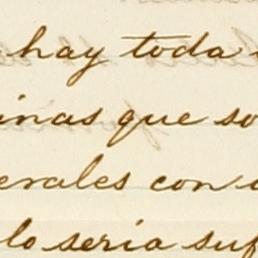 hay toda
inas que so
erales con
lo seria suf